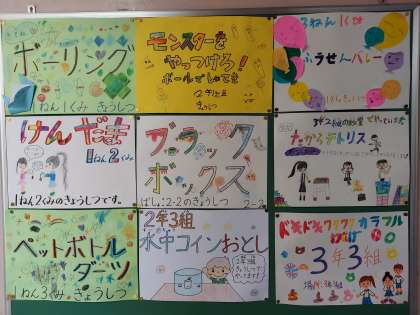 ボーリング
1ねん1くみ きょうしつ
モンスターを
やっつけろ!
ボールでしゃてき
2年1組
きょうしつ
3ねん1くみ
ふうせんバレー
けんだま
1ねん2くみ
1ねん2くみのきょうしつです。
ブラック
ボックス
ばしょ:2-2のきょうしつ
2-2
3年2組の教室でやっています
ペットボトル
ダーツ
1ねん3くみ きょうしつ
2年3組
水中コインおとし
ドキドキワクワク カラフル
3年3組